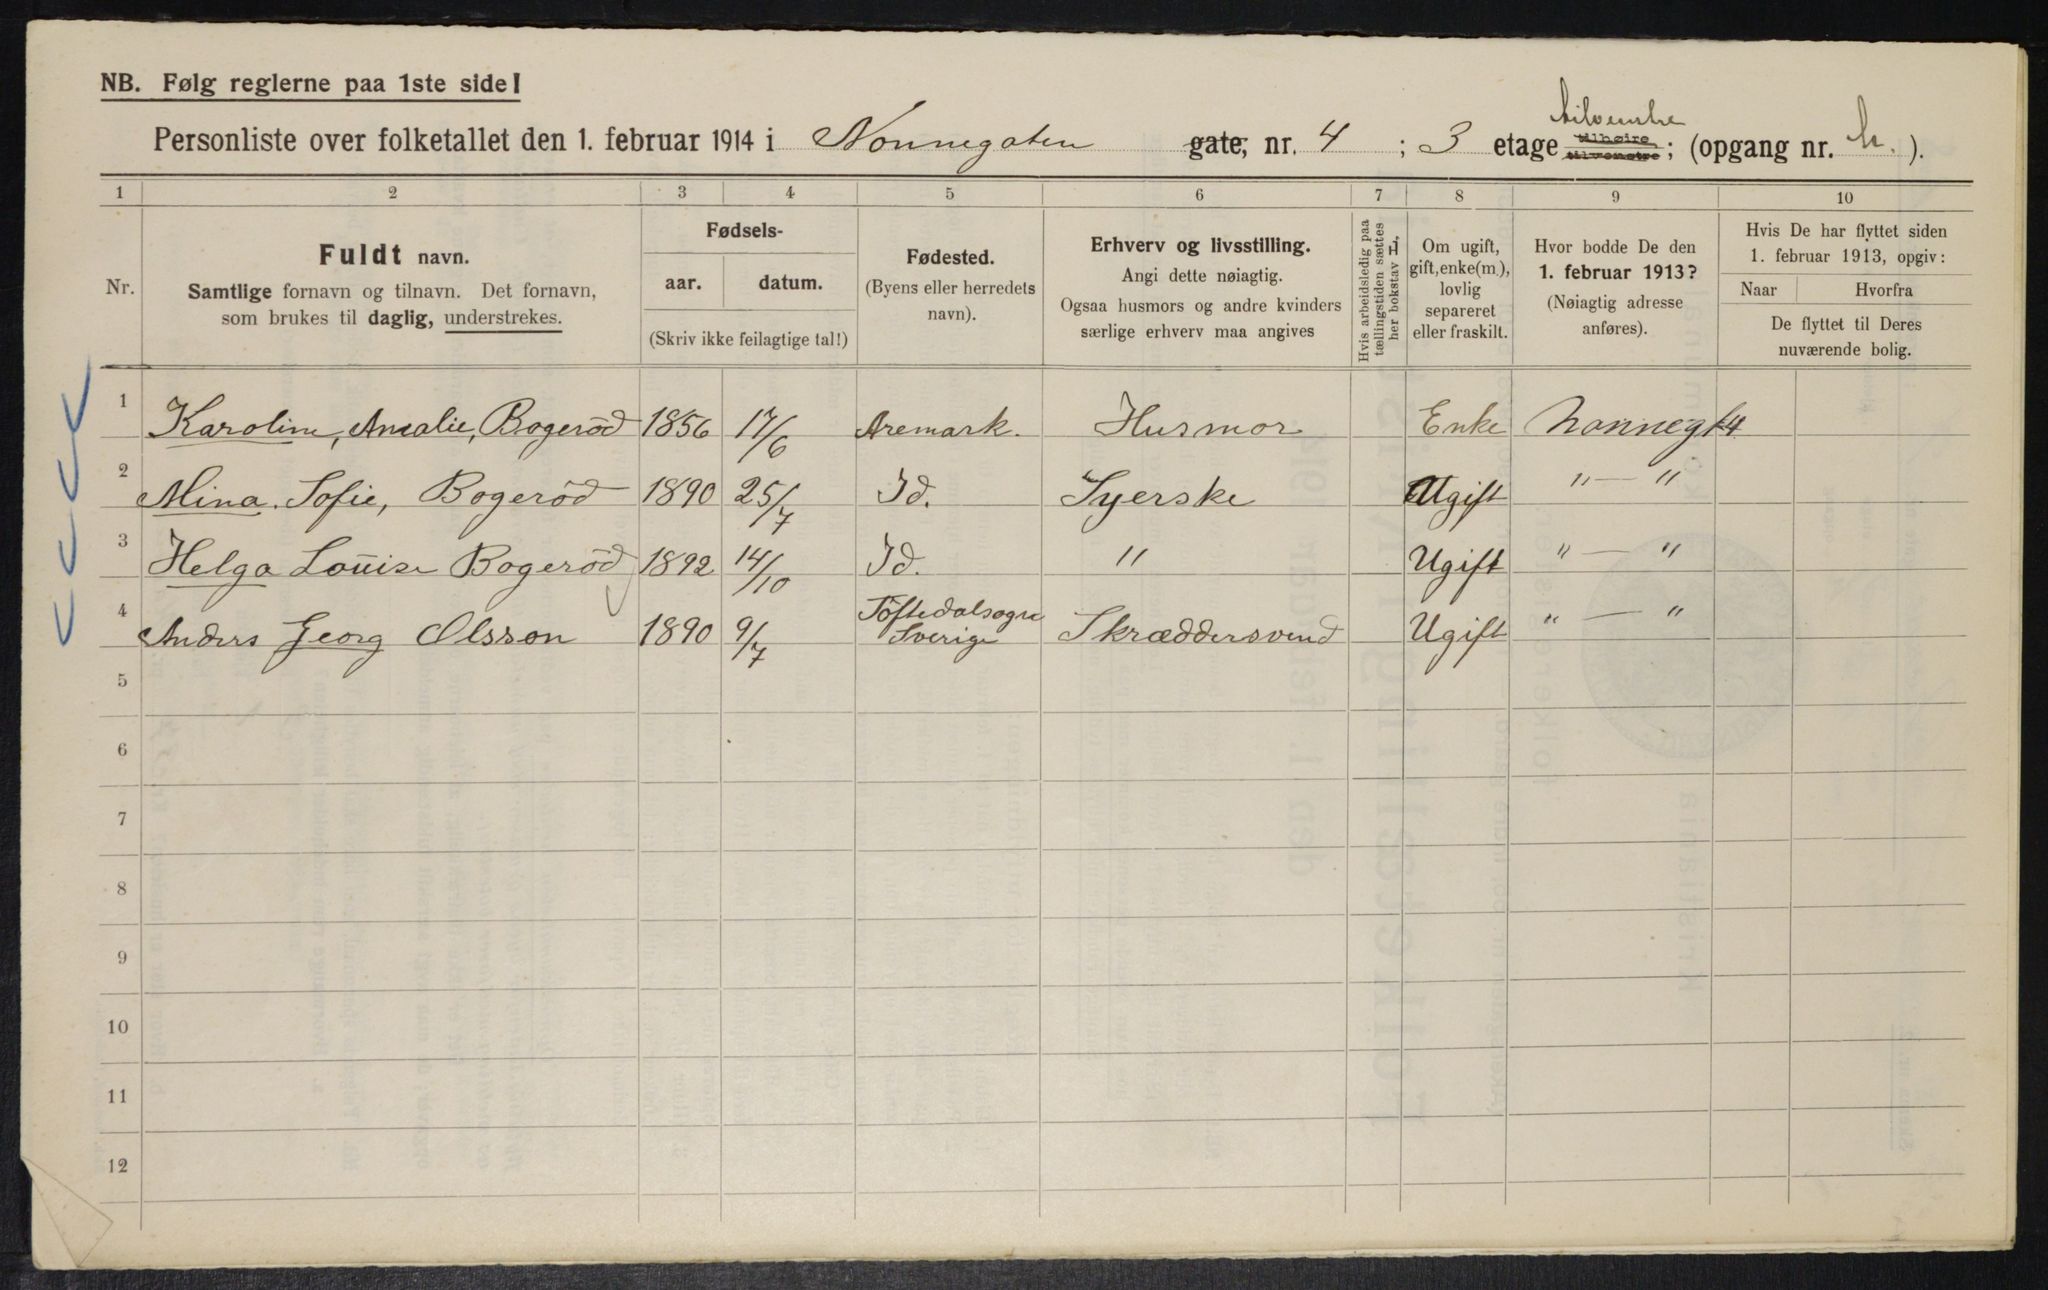 NB. Følg reglerne paa 1ste side!
tilvenstre
Personliste over folketallet den 1. februar 1914 i Nonnegaten gate, nr. 4 ; 3 etage tilhøire tilvenstre ; (opgang nr. ).
1 2 3 4 5 6 7 8 9 10
Nr.
Fuldt navn.
Samtlige fornavn og tilnavn. Det fornavn,
som brukes til daglig, understrekes.
Fødsels-
aar. datum.
(Skriv ikke feilagtige tal!)
Fødested.
(Byens eller herredets
navn).
Erhverv og livsstilling.
Angi dette nøiagtig.
Ogsaa husmors og andre kvinders
særlige erhverv maa angives
Hvis arbeidsledig paa
tællingstiden sættes
her bokstav H,
Om ugift,
gift, enke(m.),
lovlig
separeret
eller fraskilt.
Hvor bodde De den
1. februar 1913?
(Nøiagtig adresse
anføres).
Hvis De har flyttet siden
1. februar 1913, opgiv:
Naar Hvorfra
De flyttet til Deres
nuværende bolig.
1 Karoline, Amalie, Bogerød 1856 17/6 Aremark. Husmor Enke Nonnegt 4
2 Mina. Sofie, Bogerød 1890 25/7 Id. Syerske Ugift " — "
3 Helga Louise Bogerød 1892 14/10 Id. " Ugift " — "
4 Anders Georg Olsson 1890 9/7 Töftedalsogne Sverige Skræddersvend Ugift " — "
5
6
7
8
9
10
11
12